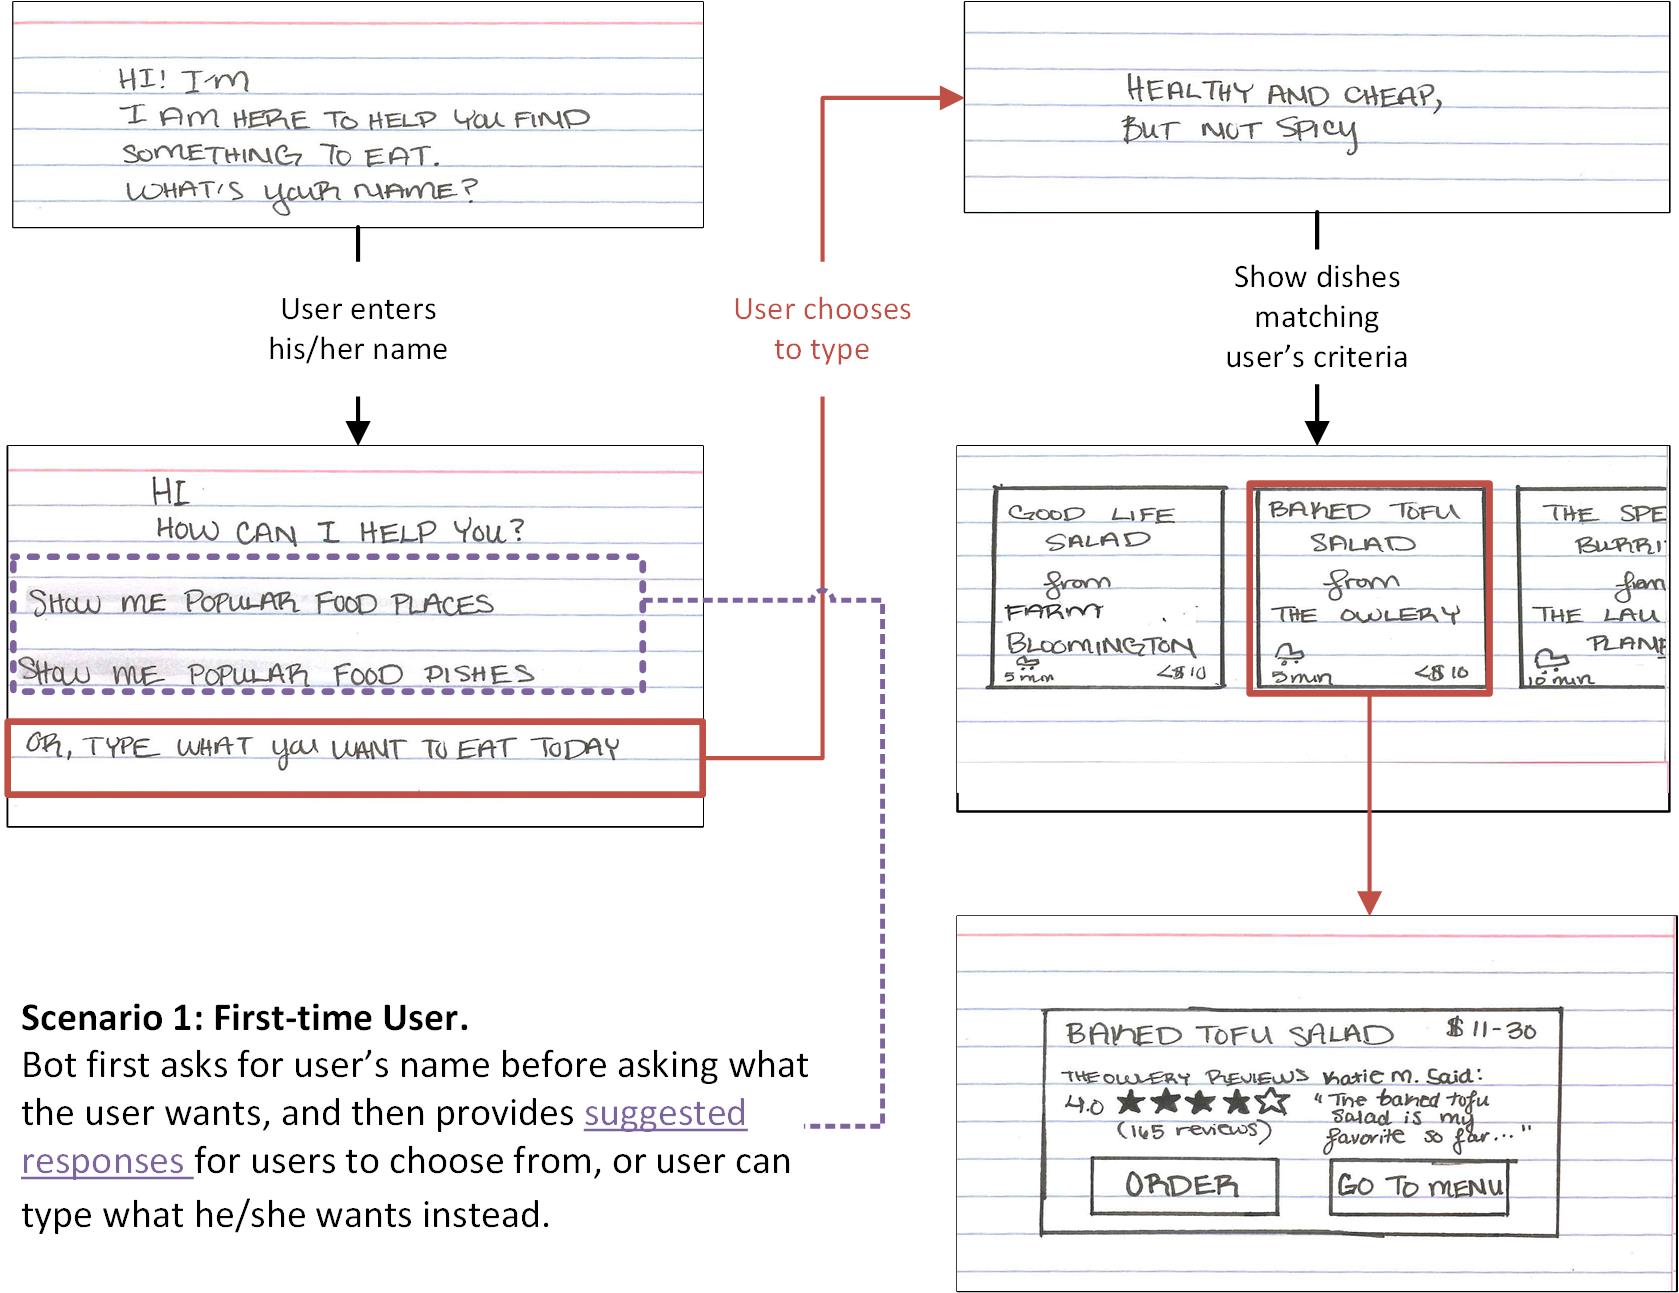 HI! I'M
I AM HERE TO HELP YOU FIND
SOMETHING TO EAT.
WHAT'S YOUR NAME?
User enters
his/her name
HI
HOW CAN I HELP YOU?
SHOW ME POPULAR FOOD PLACES
SHOW ME POPULAR FOOD DISHES
OR, TYPE WHAT YOU WANT TO EAT TODAY
User chooses
to type
HEALTHY AND CHEAP,
BUT NOT SPICY
Show dishes
matching
user's criteria
GOOD LIFE
SALAD
from
FARM
BLOOMINGTON
5 min <$10
BAKED TOFU
SALAD
from
THE OWLERY
5 min <$10
THE SPE
BURRI
from
THE LAU
PLANE
10 min
BAKED TOFU SALAD $11-30
THE OWLERY REVIEWS
4.0
(165 reviews)
Katie M. Said:
"The baked tofu
salad is my
favorite so far..."
ORDER
GO TO MENU
Scenario 1: First-time User.
Bot first asks for user's name before asking what
the user wants, and then provides suggested
responses for users to choose from, or user can
type what he/she wants instead.